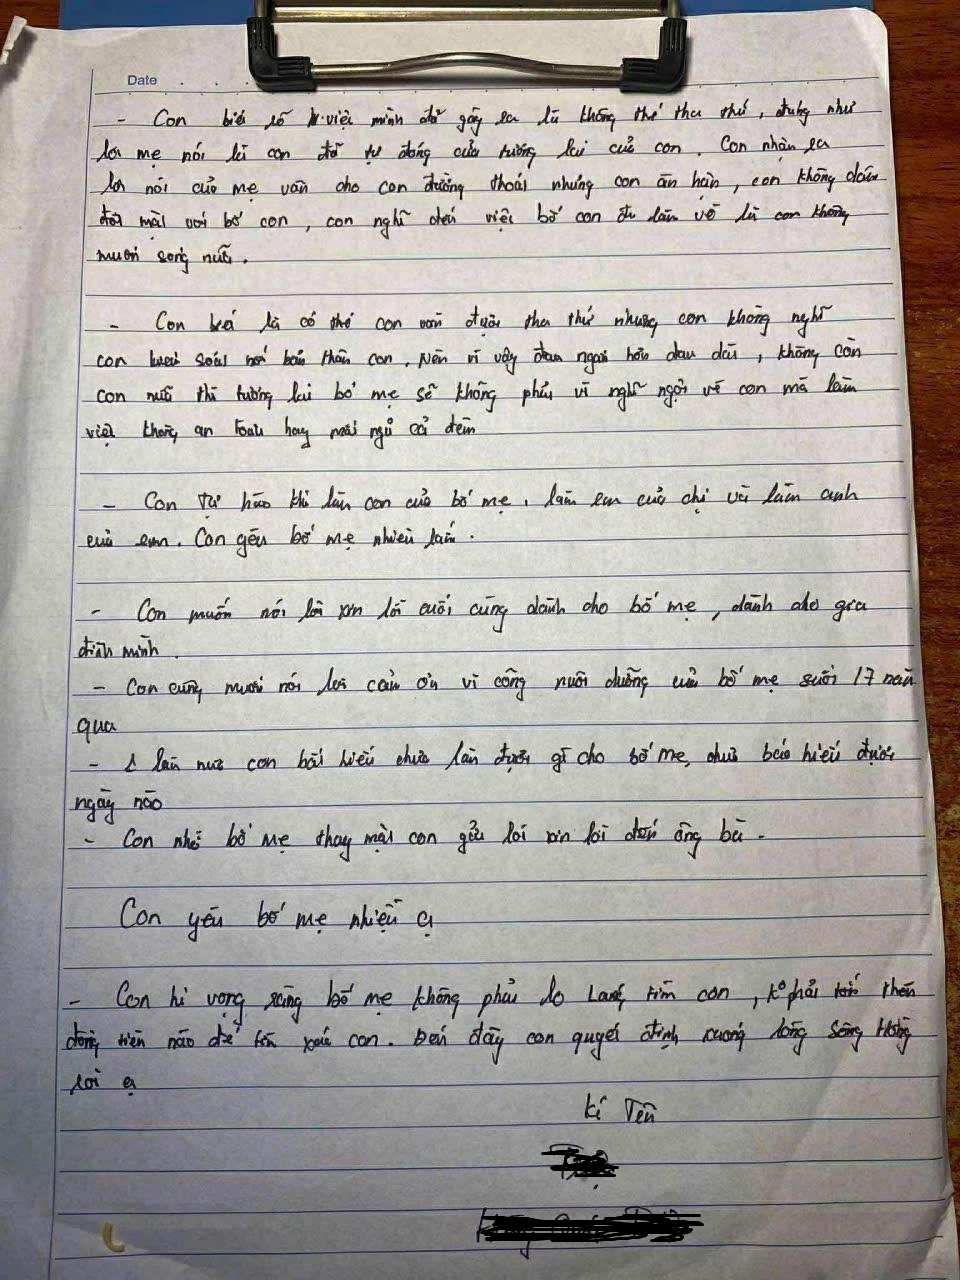 Date
- Con biết rõ việc mình đã gây ra là không thể tha thứ, đúng như
lời mẹ nói là con đã tự đóng cửa tương lai của con. Con nhận ra
lời nói của mẹ vẫn cho con đường thoát nhưng con ân hận, con không dám
đối mặt với bố con, con nghĩ đến việc bố con đi làm về là con không
muốn sống nữa.
- Con biết là có thể con vẫn được tha thứ nhưng con không nghĩ
con bản thân con. Nên vì vậy đau ngắn hơn đau dài, không còn
con nữa thì tương lai bố mẹ sẽ không phải vì nghĩ ngợi về con mà làm
việc không an toàn hay mất ngủ cả đêm
- Con tự hào khi làm con của bố mẹ, làm em của chị và làm anh
của em. Con yêu bố mẹ nhiều lắm.
- Con muốn nói lời xin lỗi cuối cùng dành cho bố mẹ, dành cho gia
đình mình.
- Con cũng muốn nói lời cảm ơn vì công nuôi dưỡng của bố mẹ suốt 17 năm
qua
- 1 lần nữa con bất hiếu chưa làm được gì cho bố mẹ, chưa báo hiếu được
ngày nào
- Con nhờ bố mẹ thay mặt con gửi lời xin lỗi đến ông bà.
Con yêu bố mẹ nhiều ạ
- Con hi vọng rằng bố mẹ không phải lo lắng tìm con, k° phải tốn thêm
đồng tiền nào để tìm xác con. Đến đây con quyết định xuống lòng sông Hồng
rồi ạ
Kí Tên